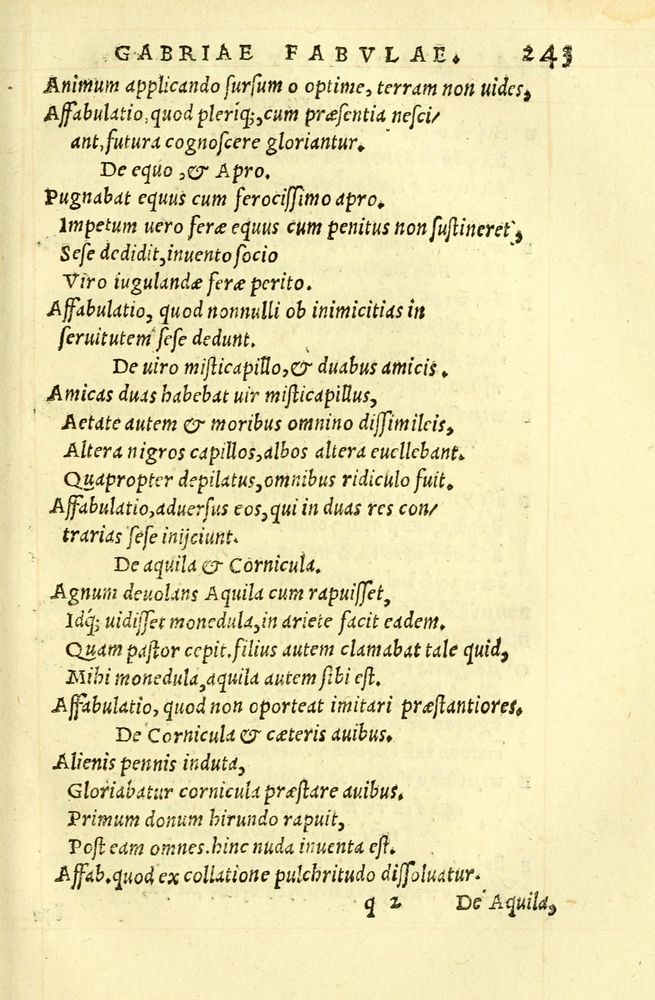 GABRIAE FABVLAE. 243
Animum applicando sursum o optime, terram non uides,
Affabulatio, quod pleriq;, cum præsentia nesci/
ant, futura cognoscere gloriantur.
De equo, & Apro.
Pugnabat equus cum ferocissimo apro.
Impetum uero feræ equus cum penitus non sustineret,
Sese dedidit, inuento socio
Viro iugulandæ feræ perito.
Affabulatio, quod nonnulli ob inimicitias in
seruitutem sese dedunt.
De uiro misticapillo, & duabus amicis.
Amicas duas habebat uir misticapillus,
Aetate autem & moribus omnino dissimileis,
Altera nigros capillos, albos altera euellebant.
Quapropter depilatus, omnibus ridiculo fuit.
Affabulatio, aduersus eos, qui in duas res con/
trarias sese inijciunt.
De aquila & Cornicula.
Agnum deuolans Aquila cum rapuisset,
Idq; uidisset monedula, in ariete facit eadem.
Quam pastor cepit. filius autem clamabat tale quid,
Mihi monedula, aquila autem sibi est.
Affabulatio, quod non oporteat imitari præstantiores.
De Cornicula & cæteris auibus.
Alienis pennis induta,
Gloriabatur cornicula præstare auibus.
Primum donum hirundo rapuit,
Post eam omnes. hinc nuda inuenta est.
Affab. quod ex collatione pulchritudo dissoluatur.
q 2 De Aquila,